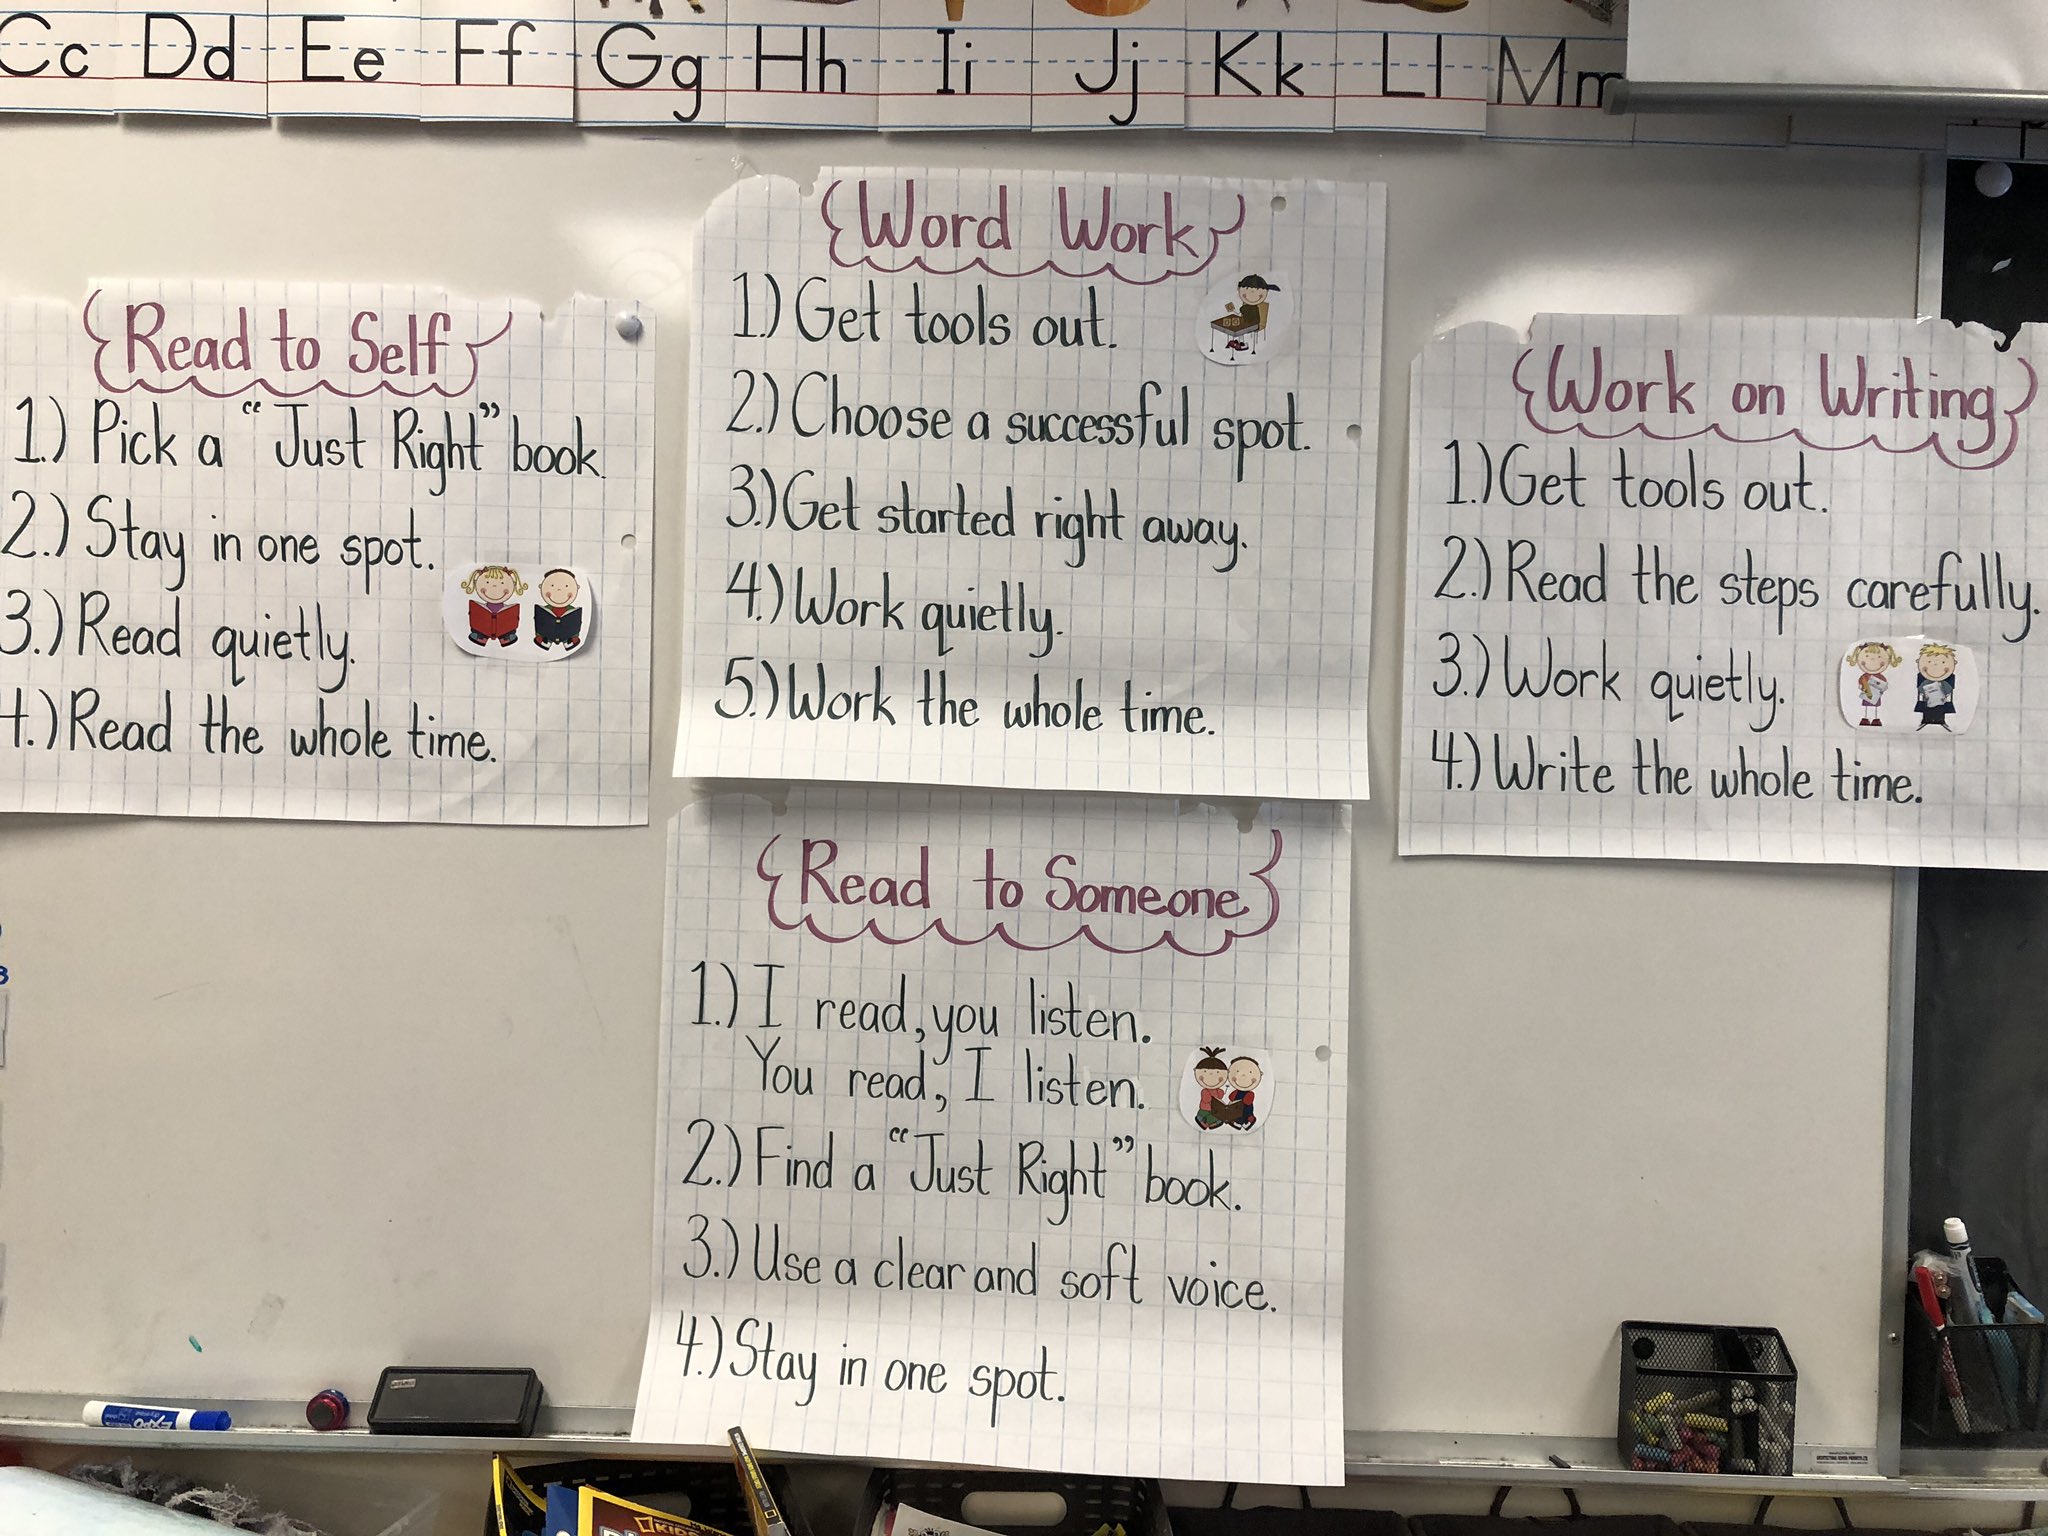 Cc Dd Ee Ff Gg Hh Ii Jj Kk Ll Mm
Read to Self
1.) Pick a "Just Right" book.
2.) Stay in one spot.
3.) Read quietly.
4.) Read the whole time.
Word Work
1.) Get tools out.
2.) Choose a successful spot.
3.) Get started right away.
4.) Work quietly.
5.) Work the whole time.
Work on Writing
1.) Get tools out.
2.) Read the steps carefully.
3.) Work quietly.
4.) Write the whole time.
Read to Someone
1.) I read, you listen.
You read, I listen.
2.) Find a "Just Right" book.
3.) Use a clear and soft voice.
4.) Stay in one spot.
EXPO
KIDS